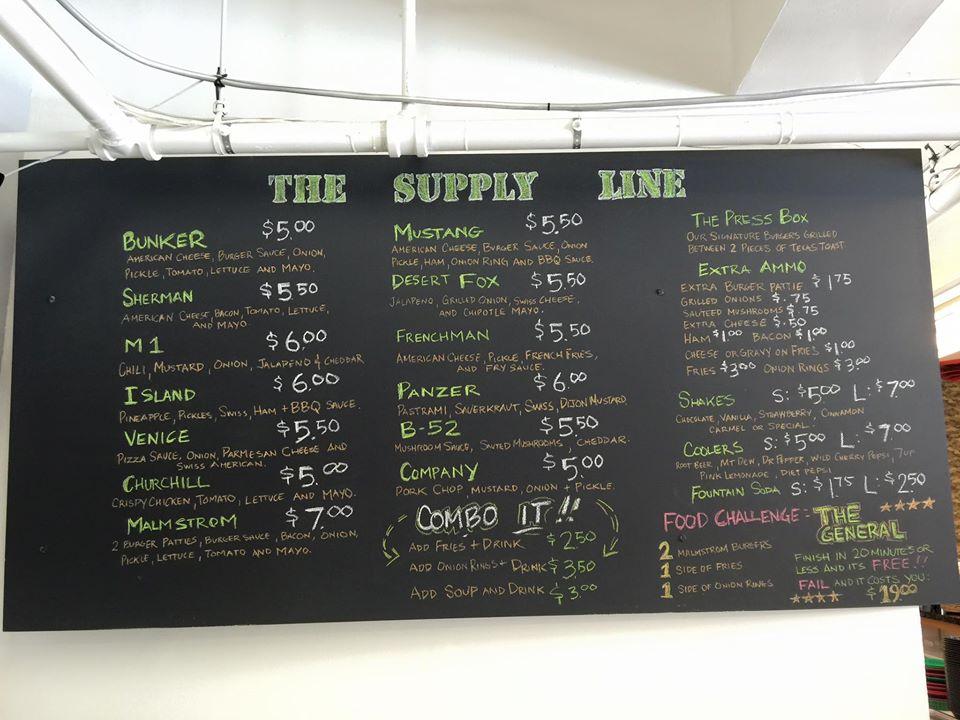 THE SUPPLY LINE
BUNKER $5.00
AMERICAN CHEESE, BURGER SAUCE, ONION,
PICKLE, TOMATO, LETTUCE AND MAYO.
SHERMAN $5.50
AMERICAN CHEESE, BACON, TOMATO, LETTUCE,
AND MAYO.
M1 $6.00
CHILI, MUSTARD, ONION, JALAPENO & CHEDDAR
ISLAND $6.00
PINEAPPLE, PICKLES, SWISS, HAM + BBQ SAUCE.
VENICE $5.50
PIZZA SAUCE, ONION, PARMESAN CHEESE AND
SWISS AMERICAN.
CHURCHILL $5.00
CRISPY CHICKEN, TOMATO, LETTUCE AND MAYO.
MALMSTROM $7.00
2 BURGER PATTIES, BURGER SAUCE, BACON, ONION,
PICKLE, LETTUCE, TOMATO AND MAYO.
MUSTANG $5.50
AMERICAN CHEESE, BURGER SAUCE, ONION
PICKLE, HAM, ONION RING AND BBQ SAUCE.
DESERT FOX $5.50
JALAPENO, GRILLED ONION, SWISS CHEESE,
AND CHIPOTLE MAYO.
FRENCHMAN $5.50
AMERICAN CHEESE, PICKLE, FRENCH FRIES,
AND FRY SAUCE.
PANZER $6.00
PASTRAMI, SAUERKRAUT, SWISS, DIJON MUSTARD.
B-52 $5.50
MUSHROOM SAUCE, SAUTED MUSHROOMS, CHEDDAR.
COMPANY $5.00
PORK CHOP, MUSTARD, ONION + PICKLE.
COMBO IT!!
ADD FRIES + DRINK $2.50
ADD ONION RINGS + DRINK $3.50
ADD SOUP AND DRINK $3.00
THE PRESS BOX
OUR SIGNATURE BURGERS GRILLED
BETWEEN 2 PIECES OF TEXAS TOAST
EXTRA AMMO
EXTRA BURGER PATTIE $1.75
GRILLED ONIONS $.75
SAUTEED MUSHROOMS $.75
EXTRA CHEESE $.50
HAM $1.00 BACON $1.00
CHEESE OR GRAVY ON FRIES $1.00
FRIES $3.00 ONION RINGS $3.00
SHAKES S: $5.00 L: $7.00
CHOCOLATE, VANILLA, STRAWBERRY, CINNAMON
CARMEL OR SPECIAL.
COOLERS S: $5.00 L: $7.00
ROOT BEER, MT DEW, DR PEPPER, WILD CHERRY PEPSI, 7UP
PINK LEMONADE, DIET PEPSI
FOUNTAIN SODA S: $1.75 L: $2.50
FOOD CHALLENGE = THE GENERAL
2 MALMSTROM BURGERS
1 SIDE OF FRIES
1 SIDE OF ONION RINGS
FINISH IN 20 MINUTES OR
LESS AND ITS FREE!!
FAIL AND IT COSTS YOU:
$19.00